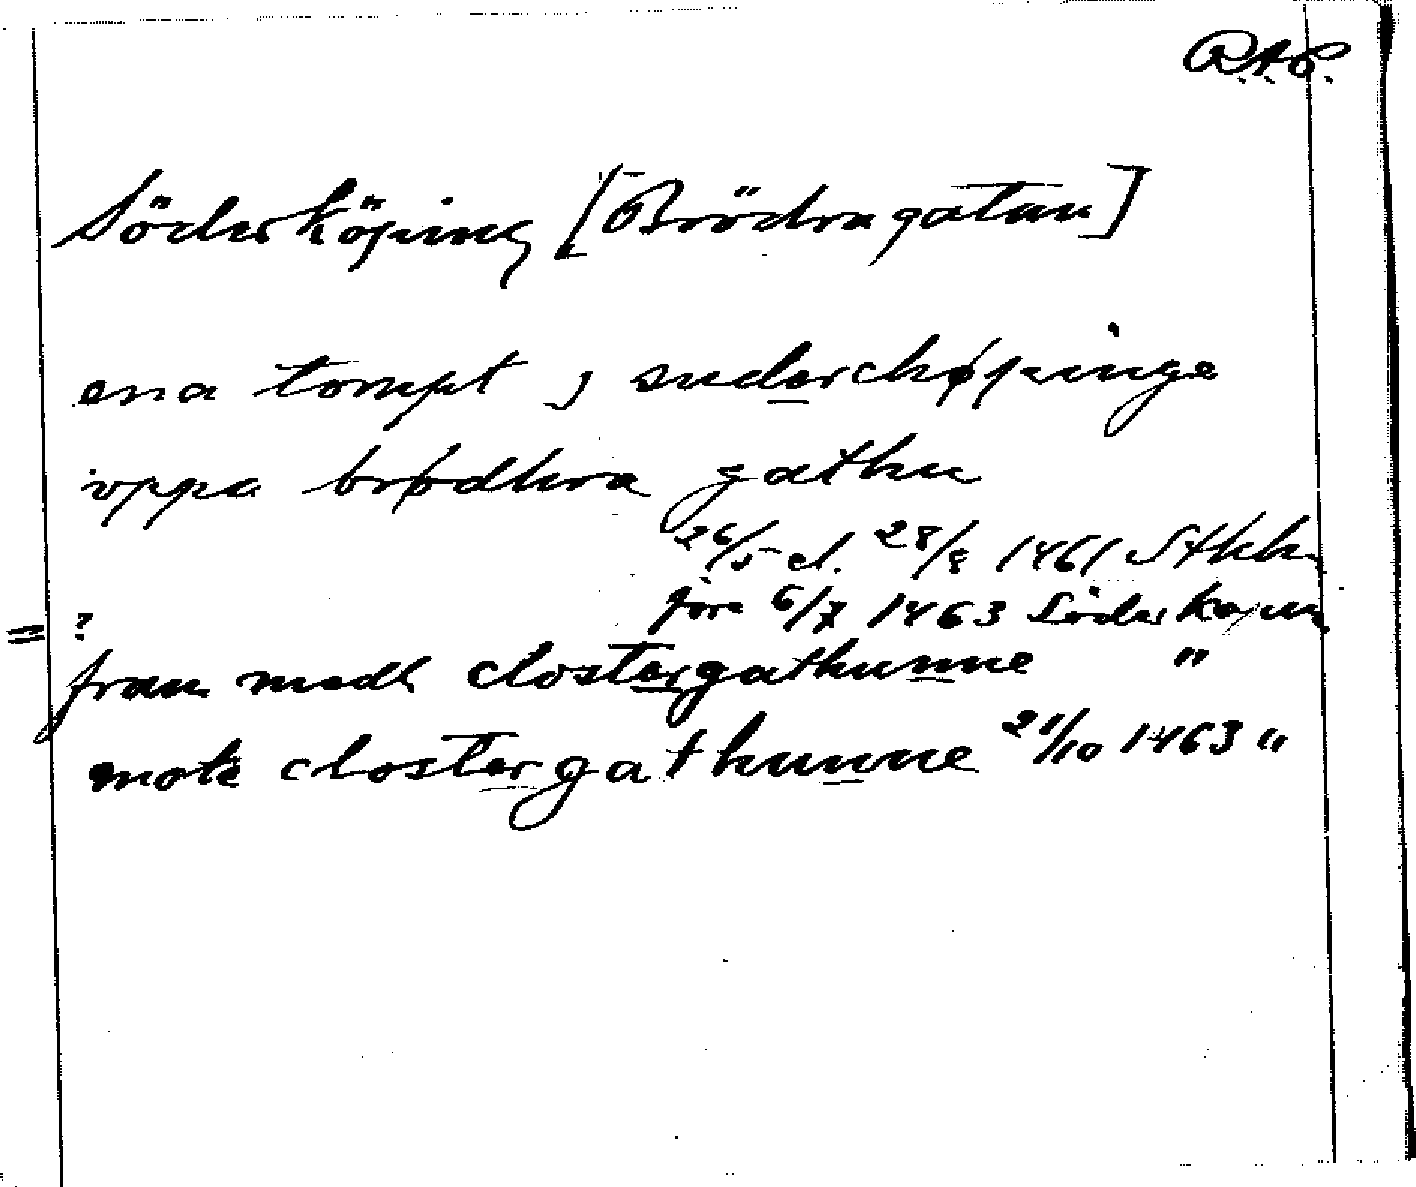 R.A.P.
Söderköping [Brödragatan]
ena tompt j suderchøpinge
vppa brødhra gathu
26/5 el. 28/8 1461 Sthlm
före 6/7 1463 Söderköping
= ?
fran medh clostergathunne "
mote clostergathunne 21/10 1463 "